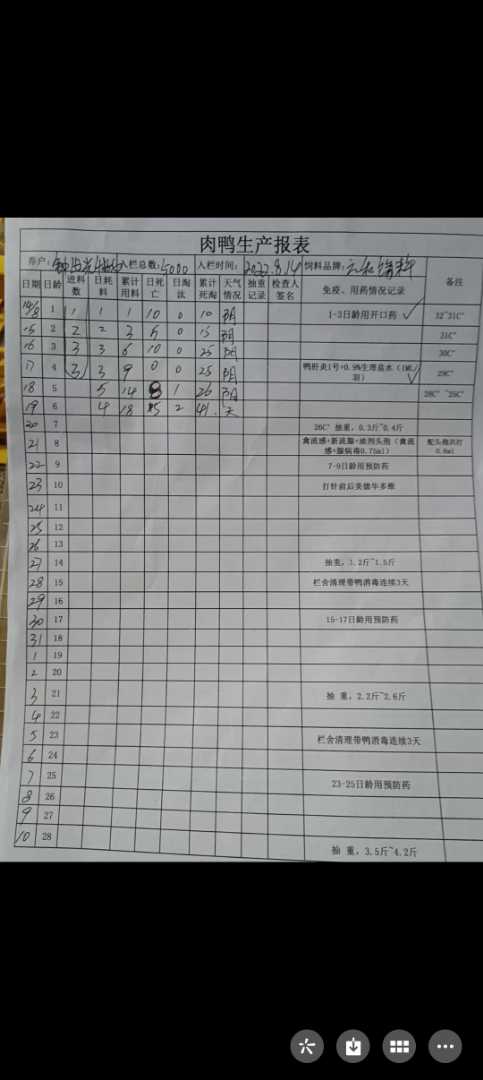 肉鸭生产报表
养户: 入栏总数:5000 入栏时间:2022.8.14 饲料品牌: 备注
日期 日龄 进料数 日耗料 累计用料 日死亡 日淘汰 累计死淘 天气情况 抽重记录 检查人签名 免疫、用药情况记录
14/8 1 1 1 1 10 0 10 阴 1-3日龄用开口药 ✓ 32~31C°
15 2 2 2 3 5 0 15 阴 31C°
16 3 3 3 6 10 0 25 阴 30C°
17 4 3 3 9 0 0 25 阴 鸭肝炎1号+0.9%生理盐水(1ML/羽) ✓ 29C°
18 5 5 14 8 1 26 阴 28C° ~26C°
19 6 4 18 15 2 41.
20 7 26C° 抽重,0.3斤~0.4斤
21 8 禽流感+新流腺+浆剂头孢(禽流感+腺病毒0.75ml) 0.8ml
22 9 7-9日龄用预防药
23 10 打针前后美儒华多维
24 11
25 12
26 13
27 14 抽重,1.2斤~1.5斤
28 15 栏舍清理带鸭消毒连续3天
29 16
30 17 15-17日龄用预防药
31 18
1 19
2 20
3 21 抽 重,2.2斤~2.6斤
4 22
5 23 栏舍清理带鸭消毒连续3天
6 24
7 25 23-25日龄用预防药
8 26
9 27
10 28 抽 重,3.5斤~4.2斤